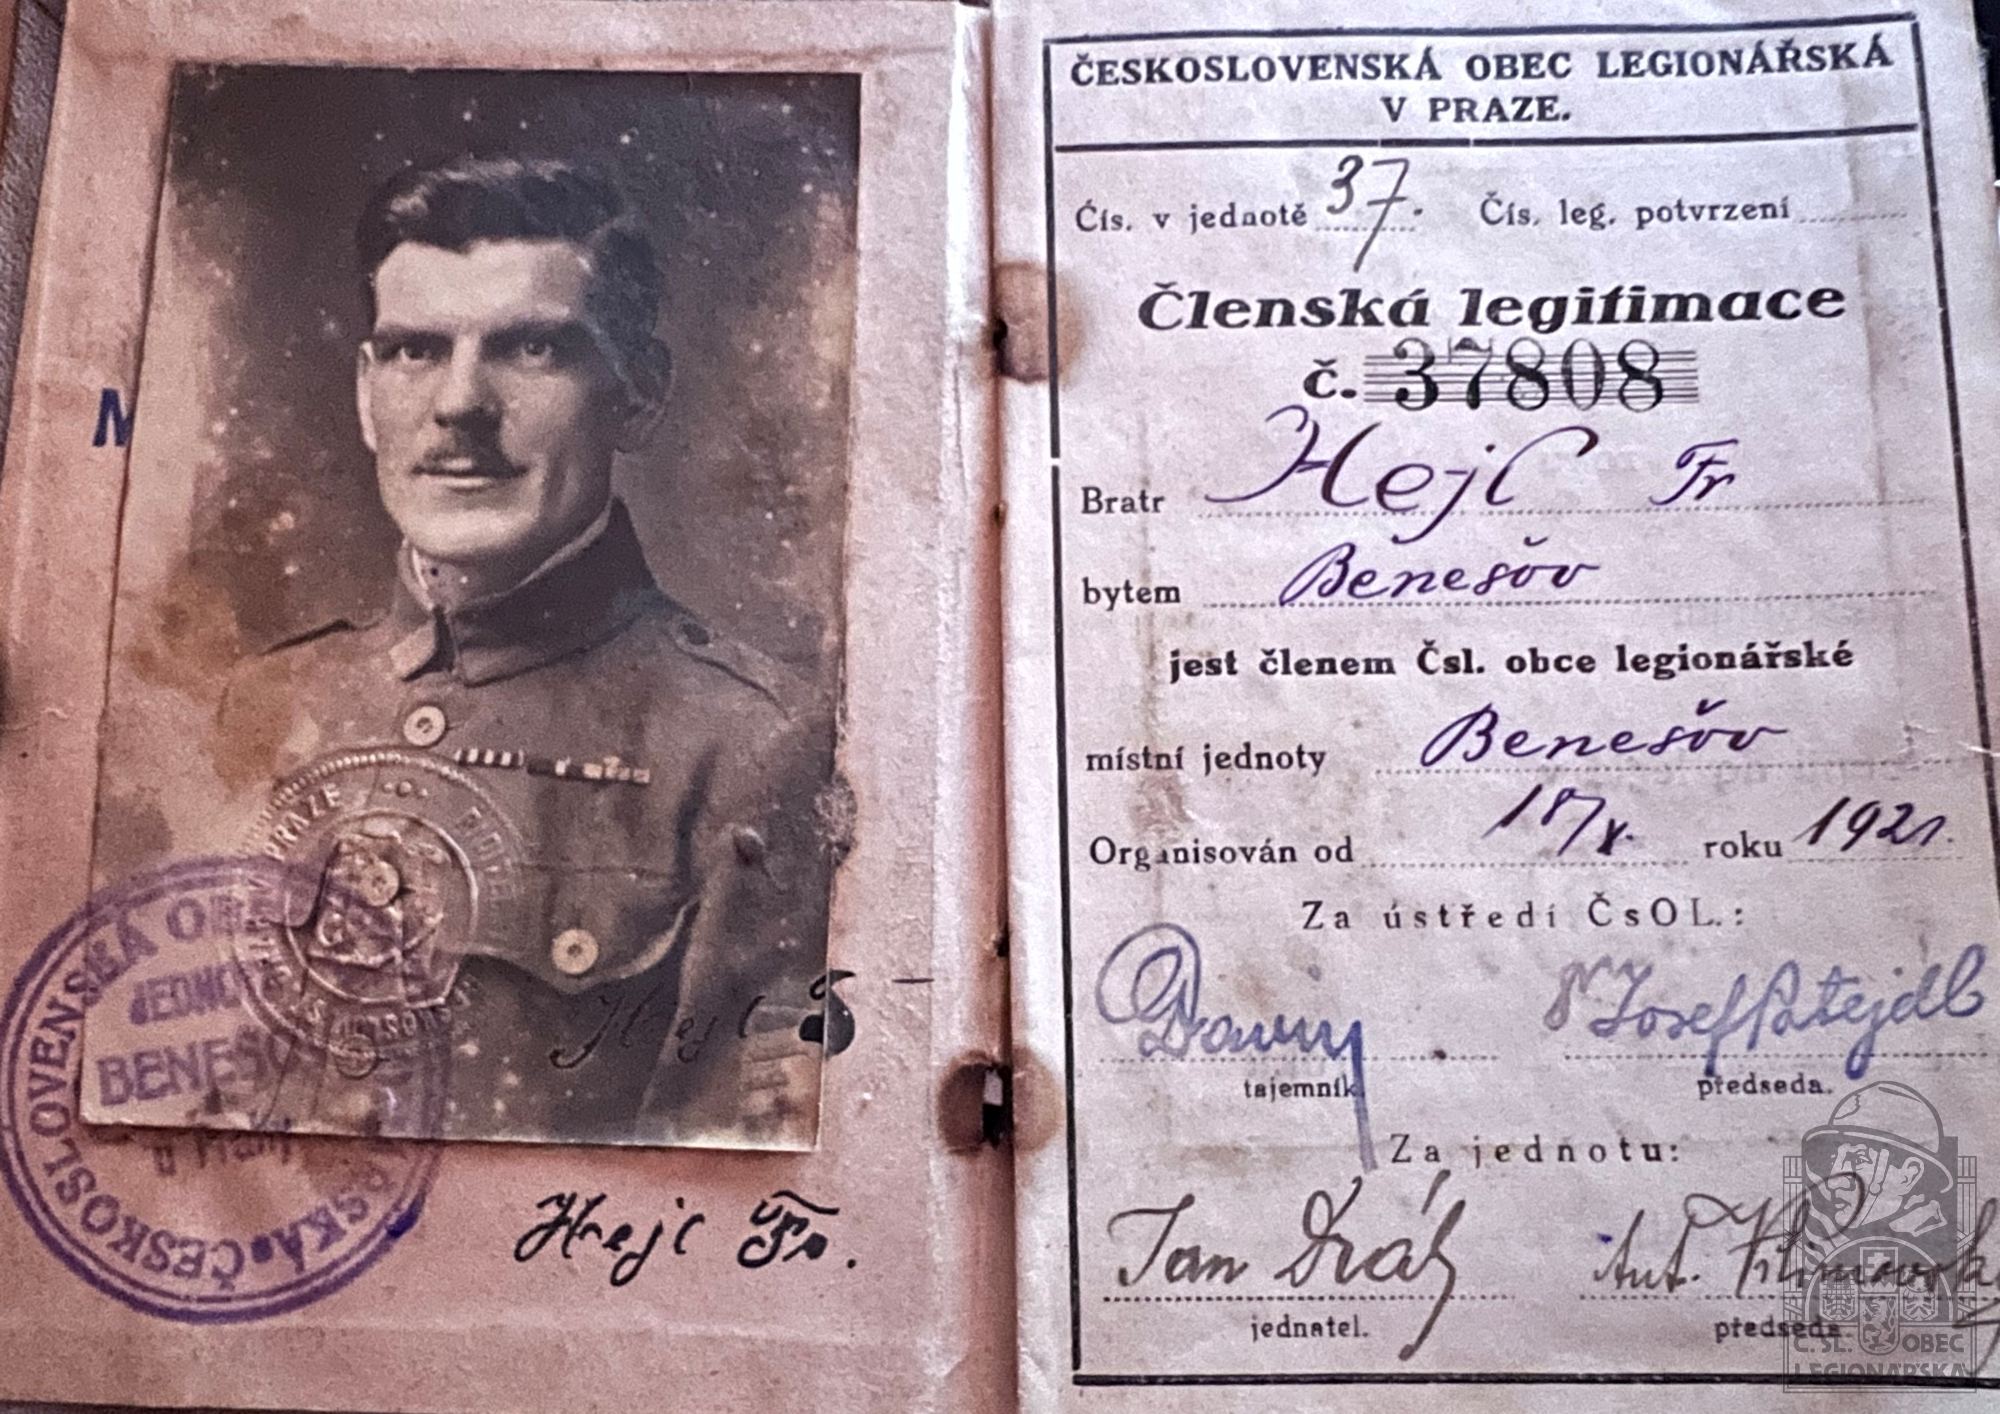 M
ČESKOSLOVENSKÁ OBEC
JEDNO
BENEŠOV
u Prahy
Hejl
Hejl Fr.
ČESKOSLOVENSKÁ OBEC LEGIONÁŘSKÁ
V PRAZE.
Čís. v jednotě 37. Čís. leg. potvrzení
Členská legitimace
č. 37808
Bratr Hejl Fr
bytem Benešov
jest členem Čsl. obce legionářské
místní jednoty Benešov
Organisován od 18/X. roku 1921.
Za ústředí ČsOL.:
Josef Patejdl
tajemník. předseda.
Za jednotu:
Jan Ant.
jednatel. předseda.
Č. SL. OBEC
LEGIONÁŘSKÁ